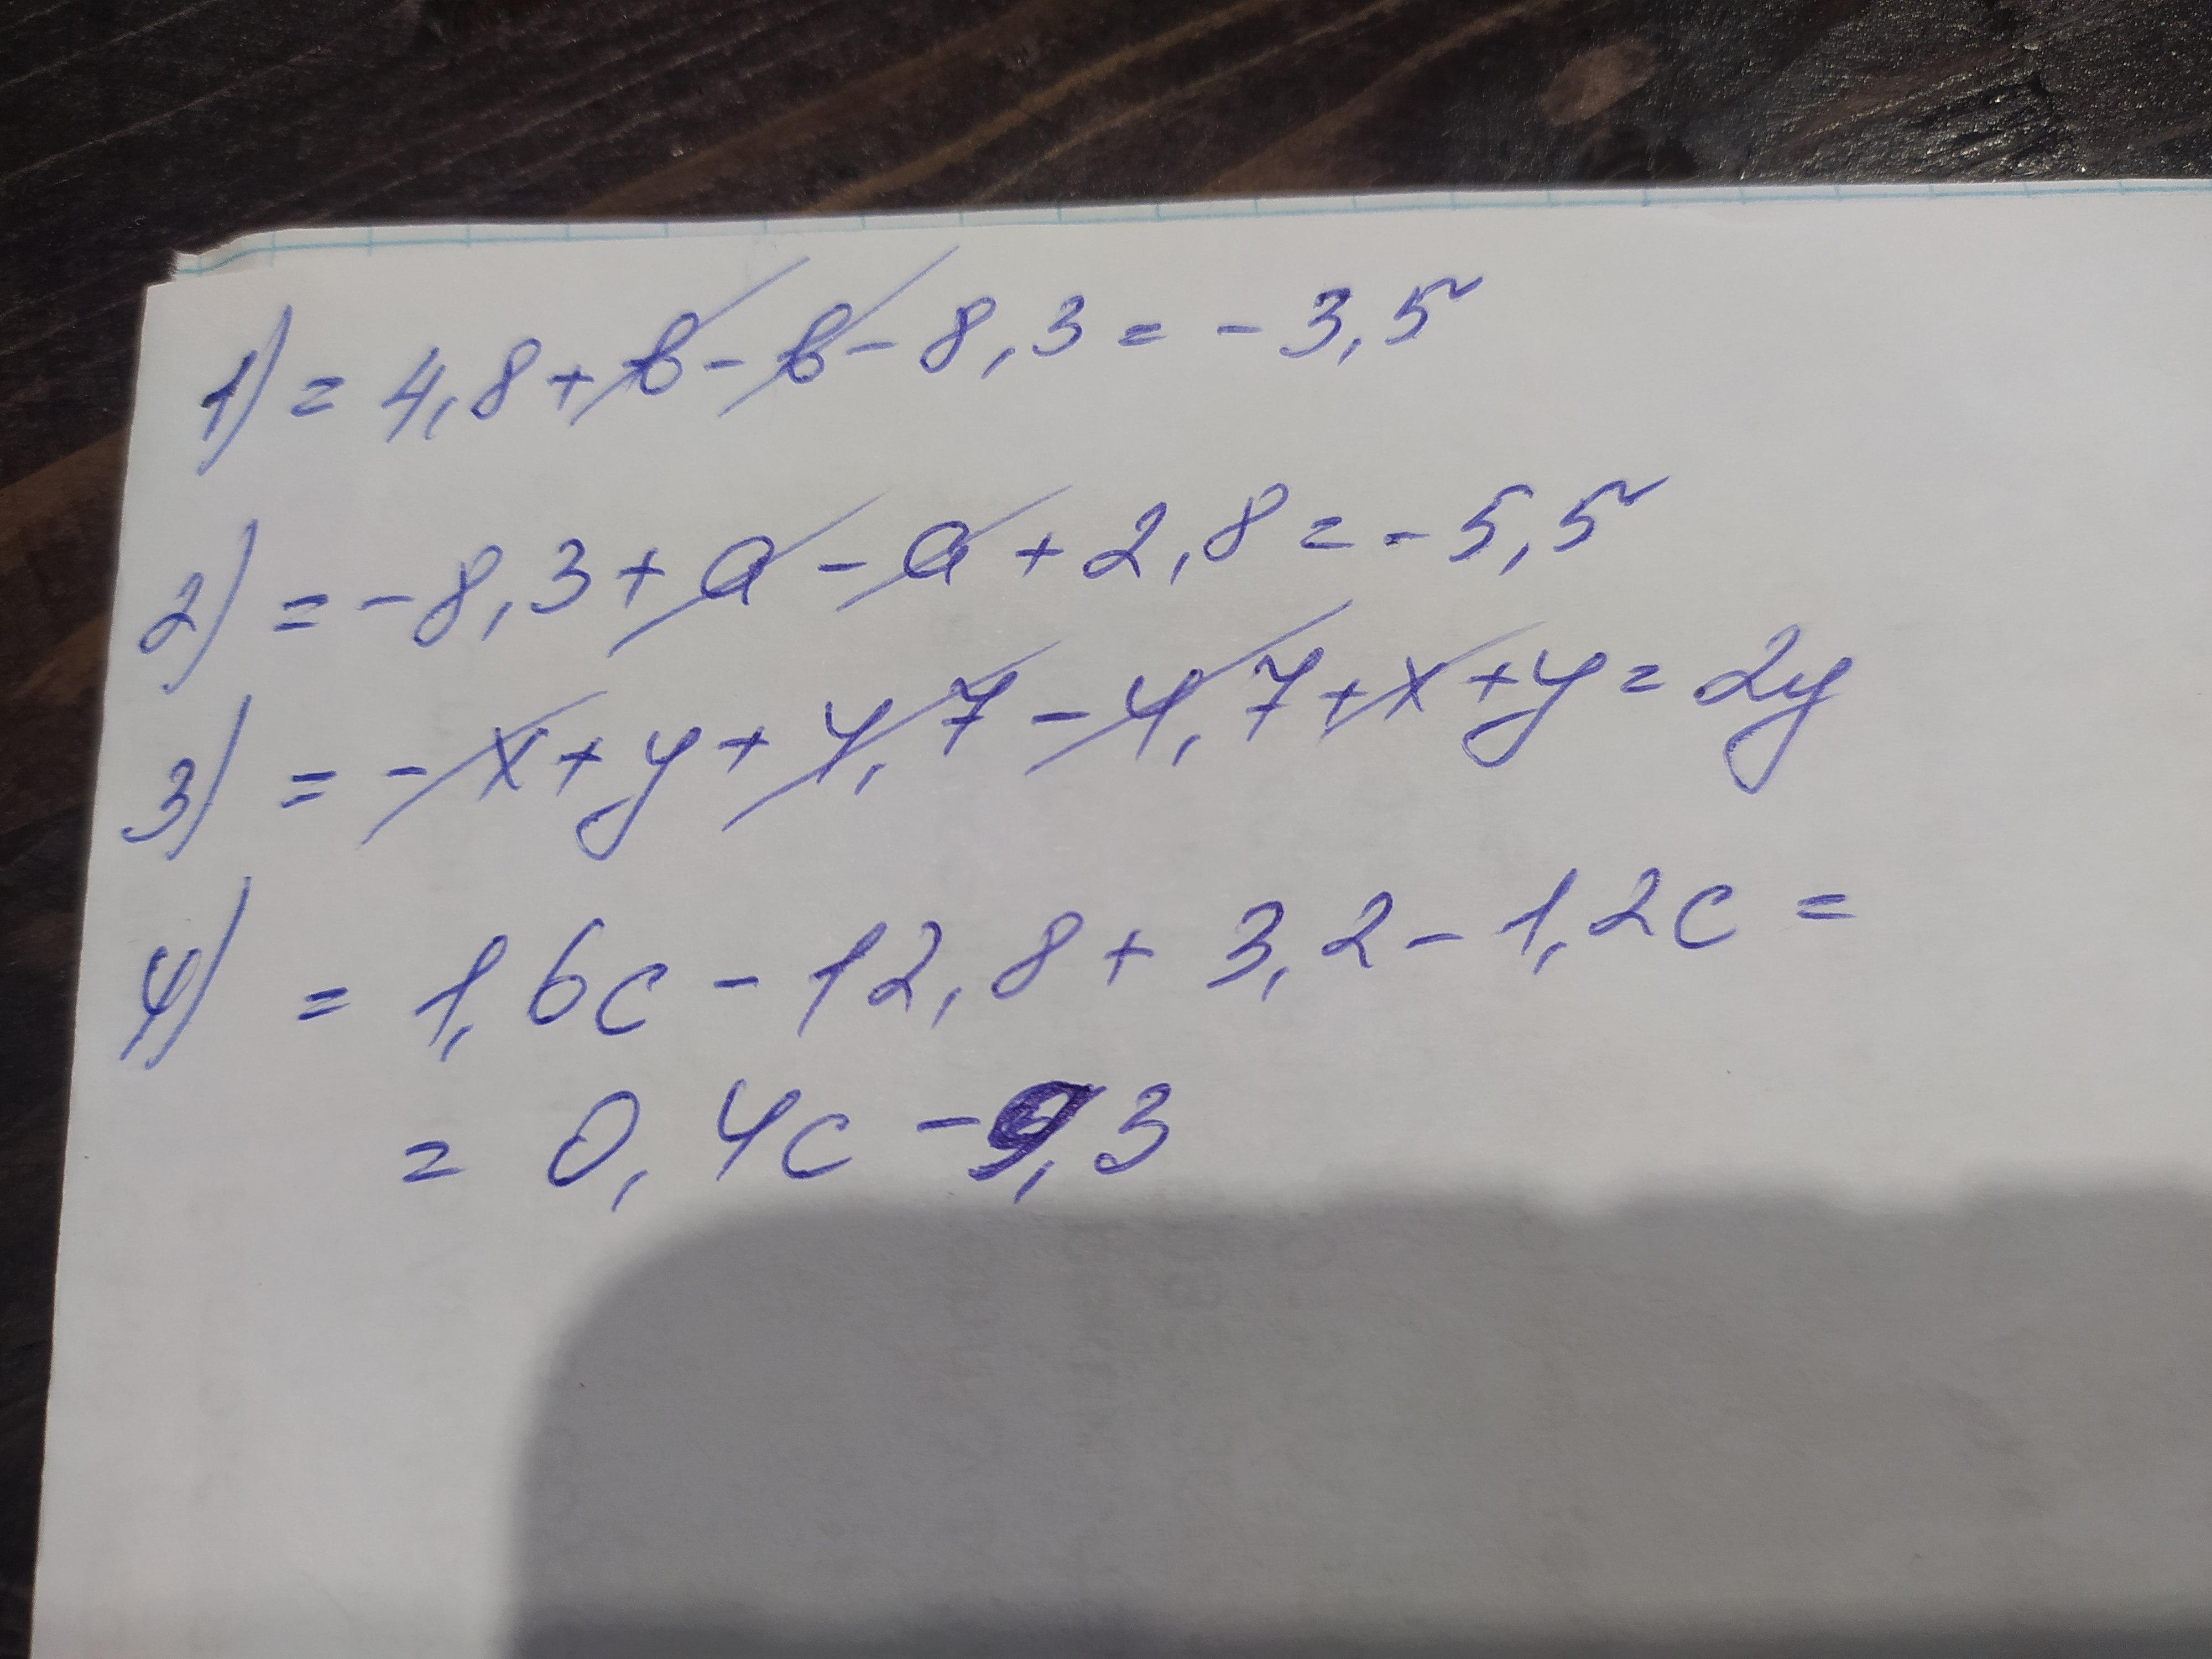 1) = 4,8 + b - b - 8,3 = - 3,5
2) = - 8,3 + a - a + 2,8 = - 5,5
3) = - x + y + 4,7 - 4,7 + x + y = 2y
4) = 1,6c - 12,8 + 3,2 - 1,2c =
= 0,4c - 9,3